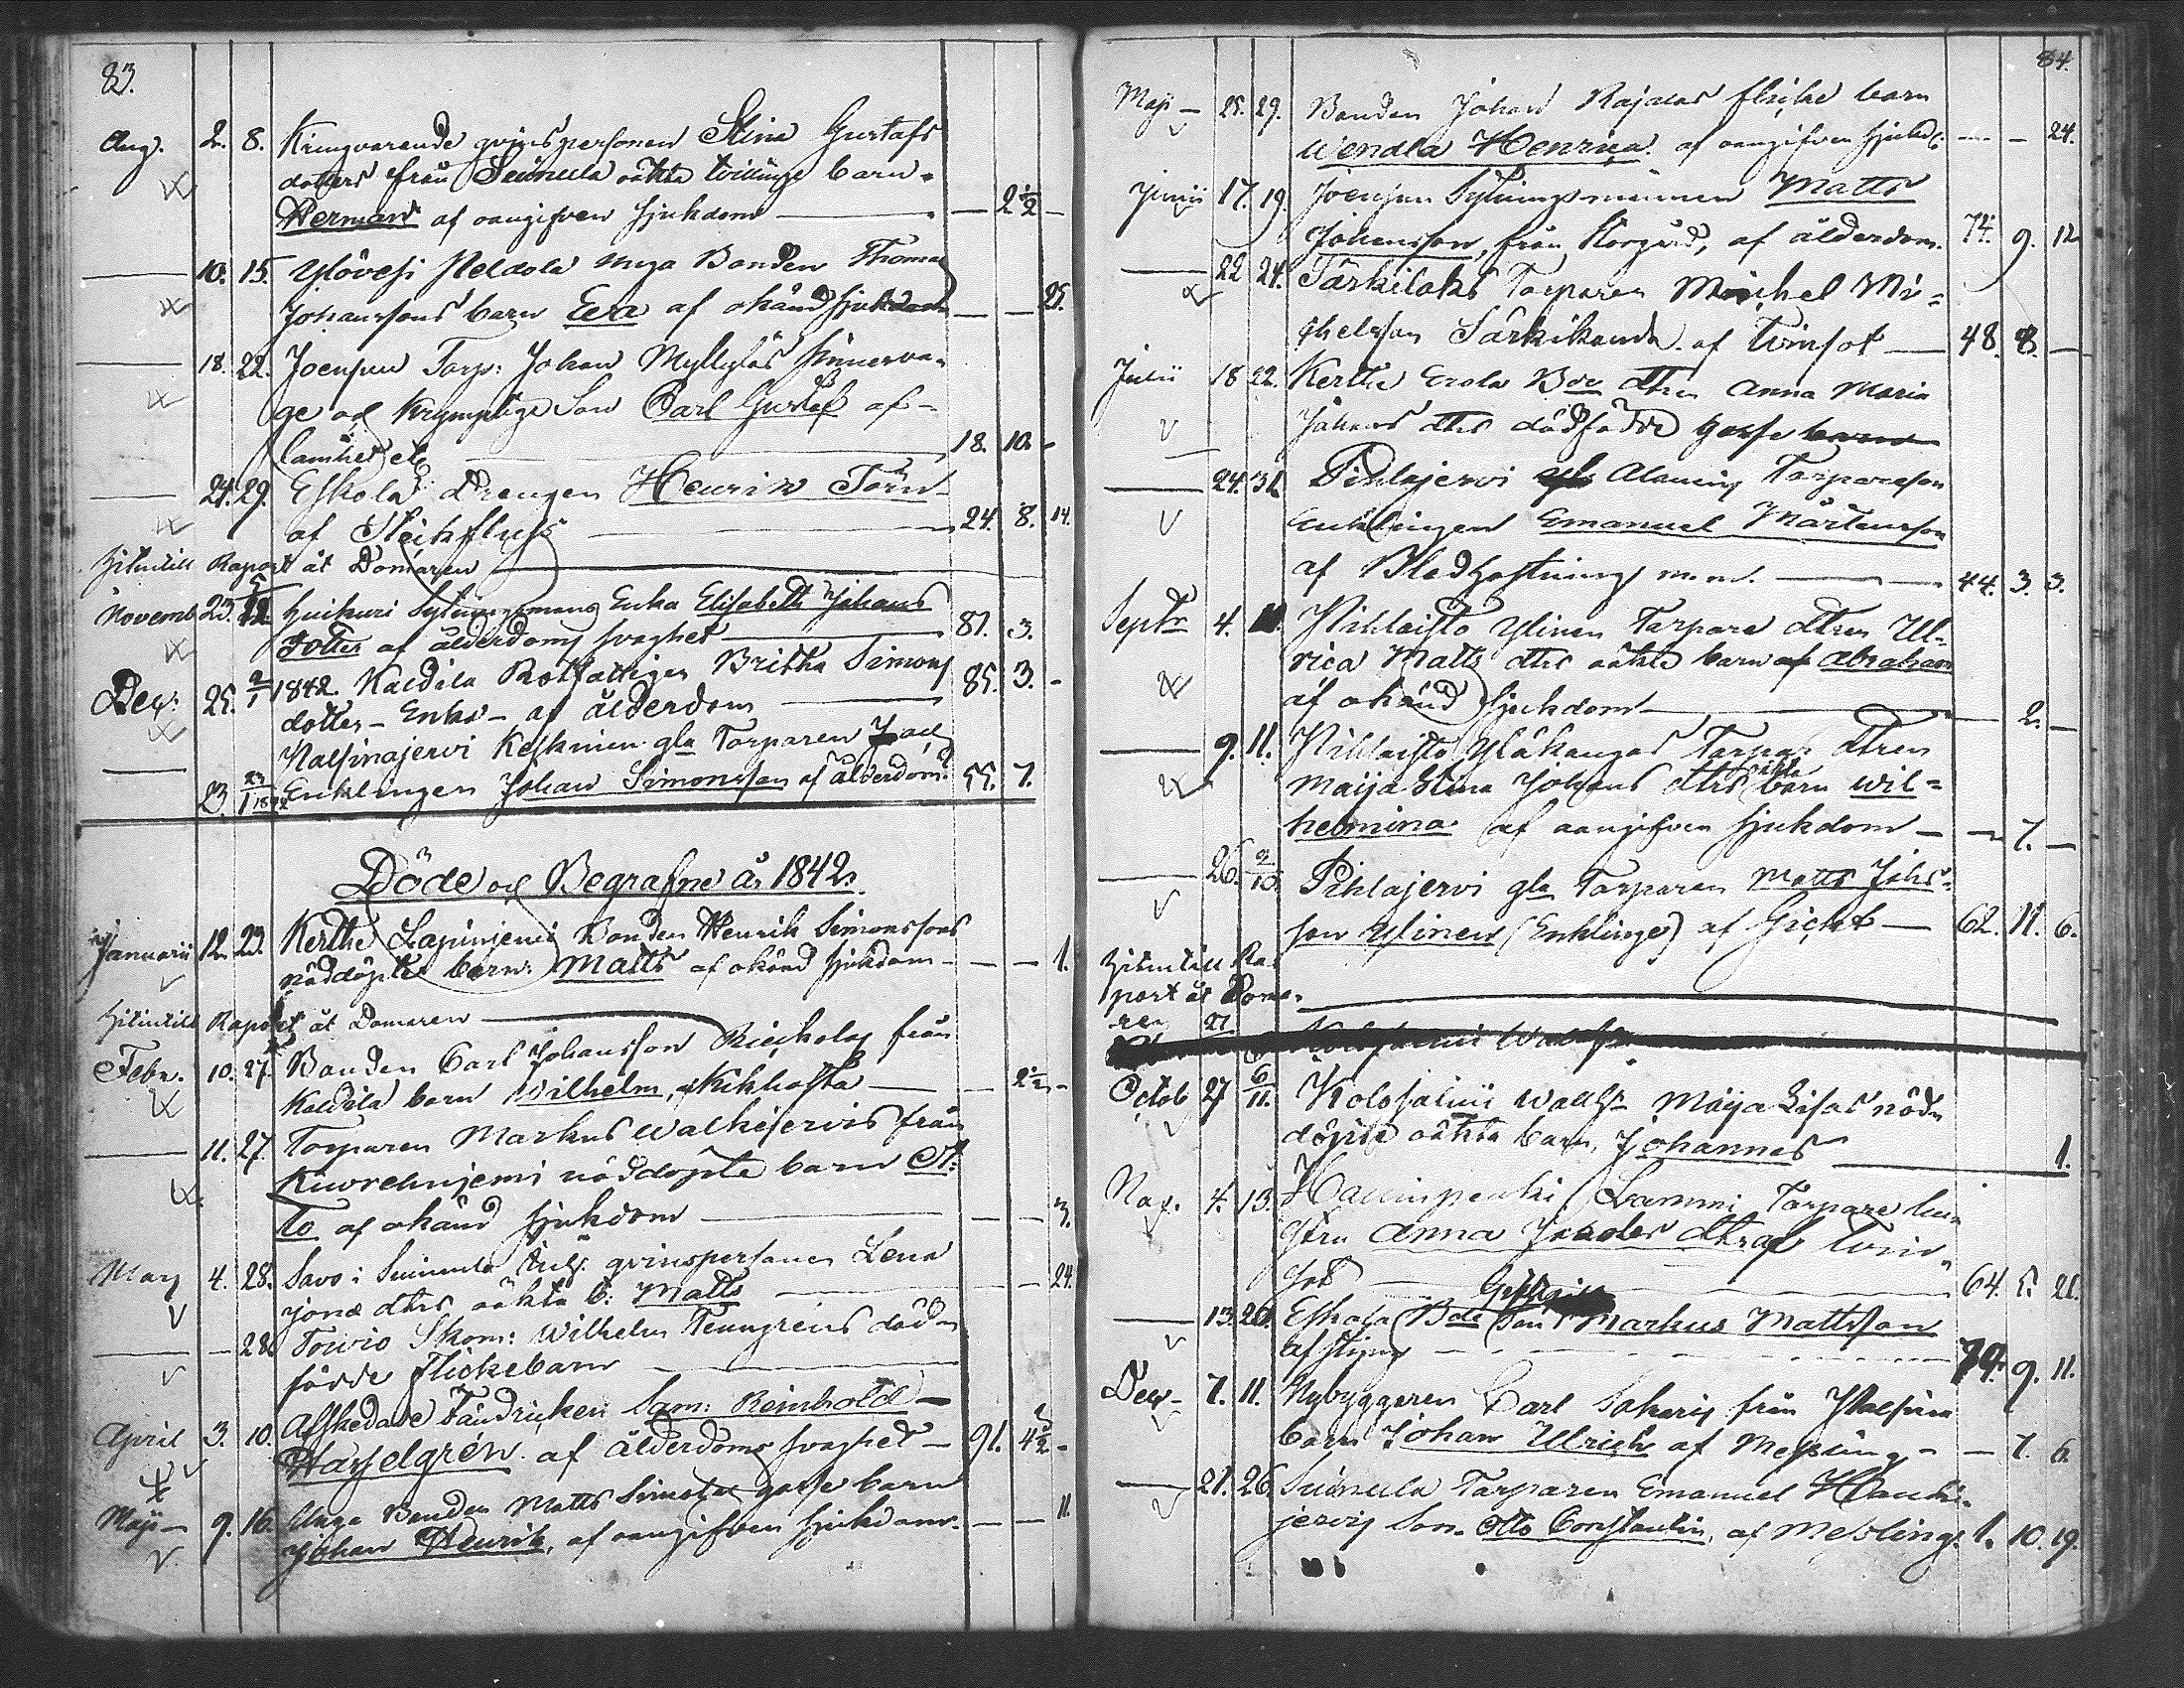 83.
Aug. 2. 8. Kringvarande qvinspersonen Stina Gustafs
dotters från Suinula oäkta tvillinge barn
Herman af oangifven sjukdom — — 2½ —
— 10. 15. Ylövesi Peldola unga Bonden Thomas
Johanssons barn Eva af okänd sjukdom — — 25.
— 18. 22. Joensuu Torp: Johan Myllyläs
ge och krymplige Son Carl Gustaf af
lamhet etc 18. 10. -
— 24. 29. Eskola Drengen Henrik Törn
af Steikfluss 24. 8. 14.
Hitintill Raport åt Domaren
Novemb 23. Huikuri Sytningsmans Enka Elisabeth Johans
dotter af ålderdoms svaghet 81. 3.
Dec: 25. 2/1 1842. Kaldila Rotfattigen Britha Simons
dotter - Enka - af ålderdom 85. 3. -
Halsinajervi Keskinen gla Torparen
— 23. 23/1 1842 Enklingen Johan Simonsson af ålderdom 55. 7.
Döde och Begrafne år 1842.
Januarii 12. 23. Kerthe Lapinjemi Bonden Henrik Simonssons
nöddöpte barn Matts af okänd sjukdom — — 1.
Hitintill Raport åt Domaren
Febr. 10. 27. Bonden Carl Johansson från
Kaldila barn Wilhelm, af Kikhosta — — 2½ -
— 11. 27. Torparen Markus Walkejervis från
Kuorehnjemi nöddöpta barn Ot-
to af okänd sjukdom — — 3.
Mars 4. 28. Savo i Suinula qvinspersonen Lena
Jonæ dtrs oäkta b: Matts — 24.
— — 28. Torvio Skom: Wilhelm Tenngréns död
födde flickebarn
April 3. 10. Afskedade Fändricken Sam: Reinhold
Hasselgrén af ålderdoms svaghet — 91. 4½ -
Maji — 9. 16. Unga Bonden Matts gosse barn
Johan Henrik, af oangifven sjukdom. — — 11
84.
Maji — 25. 29. Bonden Johan Rajalas flicke barn
Wendla Henrica af oangifven sjukd: — — 24.
Junii 17. 19. Joensuu Sytningsmannen Matts
Johansson, från Korgård, af ålderdom. 74. 9. 12
— 22 24. Särkilaks Torparen Michel Mi-
chelsson Särkikanda af Tvinsot — 48. 8. —
Julii 18 22. Kerthe Erola Bde dtren Anna Maria
Johans dtrs dödfödde gosse barn
— 24. 31. Pihlajervi Alanins Torpareson
Enklingen Emanuel Mårtensson
af Blodhostning m.m. — 44. 3. 3.
Septr 4. 11. Pihlaisto Ylinen Torpare dtren Ul-
rica Matts dtrs oäkta barn Abraham
af okänd sjukdom — 2. —
— 9. 11. Pihlaisto Yläkangas Torpar dtren
Maija Stina Johans dtrs oäkta barn Wil-
helmina af oangifven sjukdom — — 7. —
— 26. 2/10. Pihlajervi gla Torparen Matts Johs-
son Ylinen (Enklinge) af Gickt — 62. 11. 6.
Hitintill Ra-
port åt Doma-
ren
Octob 27 6/11. Kolosalmi Maija Lisas nöd
döpte oäkta barn, Johannes — 1.
Nov. 4. 13. Hauinpenki Lammi Torpare
stru Anna dtr af tvin-
sot 64. 5. 21.
— 13. 20. Eskola Bde Markus Mattsson
af sting 74. 9. 11.
Dec — 7. 11. Nybyggaren Carl Sakaris från
barn Johan Ulrich af Messling — — 7. 6.
— 21. 26. Suinula Torparen Emanuel Hauki-
jervis Son Otto Constantin, af Messling. 1. 10. 19.